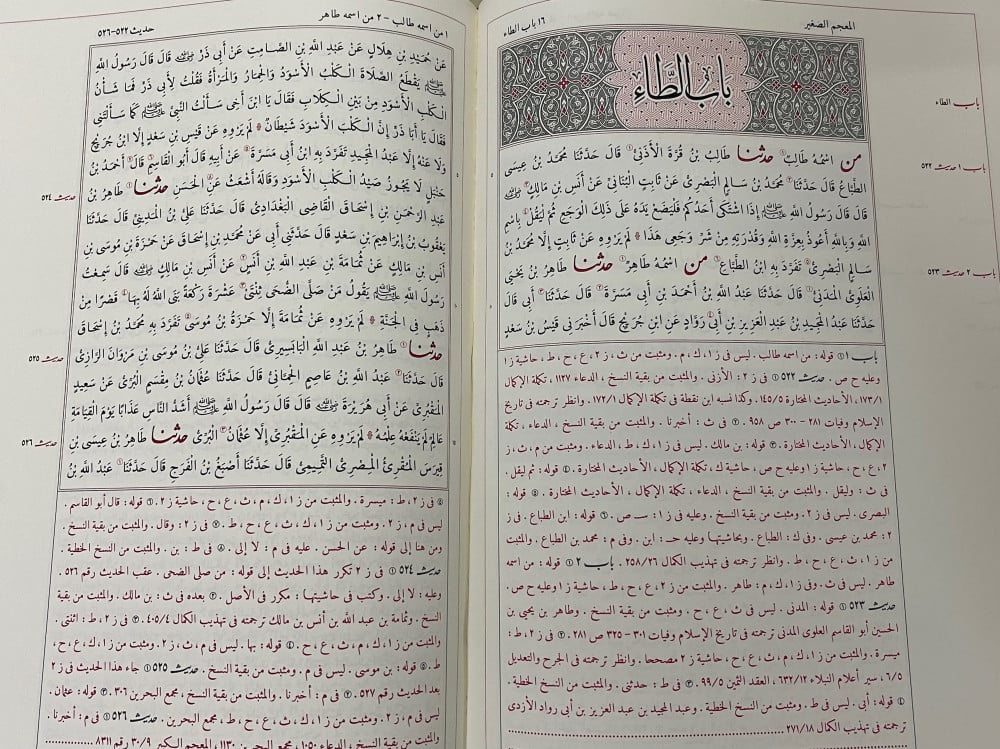 المعجم الصغير
١٦ باب الطاء
باب الطاء
باب الطَّاء
باب ١ حديث ٥٢٢
مَنِ اسْمُهُ طَالِبٌ حدثنا طَالِبُ بْنُ قُرَّةَ الْأَذَنِيُّ قَالَ حَدَّثَنَا مُحَمَّدُ بْنُ عِيسَى
الطَّبَّاعُ قَالَ حَدَّثَنَا مُحَمَّدُ بْنُ سَالِمٍ الْبَصْرِيُّ عَنْ ثَابِتٍ الْبُنَانِيِّ عَنْ أَنَسِ بْنِ مَالِكٍ
قَالَ قَالَ رَسُولُ اللَّهِ ﷺ إِذَا اشْتَكَى أَحَدُكُمْ فَلْيَضَعْ يَدَهُ عَلَى ذَلِكَ الْوَجَعِ ثُمَّ لْيَقُلْ بِاسْمِ
اللَّهِ وَبِاللَّهِ أَعُوذُ بِعِزَّةِ اللَّهِ وَقُدْرَتِهِ مِنْ شَرِّ وَجَعِي هَذَا * لَمْ يَرْوِهِ عَنْ ثَابِتٍ إِلَّا مُحَمَّدُ بْنُ
باب ٢ حديث ٥٢٣
سَالِمٍ الْبَصْرِيُّ تَفَرَّدَ بِهِ ابْنُ الطَّبَّاعِ مَنِ اسْمُهُ طَاهِرٌ حدثنا طَاهِرُ بْنُ يَحْيَى
الْعَلَوِيُّ الْمَدَنِيُّ قَالَ حَدَّثَنَا عَبْدُ اللَّهِ بْنُ أَحْمَدَ بْنِ أَبِي مَسَرَّةَ قَالَ حَدَّثَنَا أَبِي قَالَ
حَدَّثَنَا عَبْدُ الْمَجِيدِ بْنُ عَبْدِ الْعَزِيزِ بْنِ أَبِي رَوَّادٍ عَنِ ابْنِ جُرَيْجٍ قَالَ أَخْبَرَنِي قَيْسُ بْنُ سَعْدٍ
باب ١ ① قوله : من اسمه طالب . ليس في ز ١ ، ك ، م . ومثبت من ث ، ز ٢ ، ع ، ح ، ط ، حاشية ز ١
وعليه ح ص . حديث ٥٢٢ ① في ز ٢ : الأزنى . والمثبت من بقية النسخ ، الدعاء ١١٣٧ ، تكملة الإكمال
١٧٣/١ ، الأحاديث المختارة ١٤٥/٥ . وكذا نسبه ابن نقطة في تكملة الإكمال ١٧٢/١ . وانظر ترجمته في تاريخ
الإسلام وفيات ٢٨١ - ٣٠٠ ص ٩٥٨ . ② في ث : أخبرنا . والمثبت من بقية النسخ ، الدعاء ، تكملة
الإكمال ، الأحاديث المختارة . ③ قوله : بن مالك . ليس في ز ١ ، ك ، ط ، الدعاء . ومثبت من م ، ث ، ز
٢ ، ع ، ح ، حاشية ز ١ وعليه ح ص ، حاشية ك ، تكملة الإكمال ، الأحاديث المختارة . ④ قوله : ثم ليقل .
في ث : وليقل . والمثبت من بقية النسخ ، الدعاء ، تكملة الإكمال ، الأحاديث المختارة . ⑤ قوله :
البصرى . ليس في ز ٢ . ومثبت من بقية النسخ . وعليه في ز ١ : ـــ ص . ⑥ قوله : ابن الطباع . في ز
٢ : محمد بن عيسى . وفي ك : الطباع . وبحاشيتها وعليه حـ : ابن . وفي م : محمد بن الطباع . والمثبت
من ز ١ ، ث ، ع ، ح ، ط . وانظر ترجمته في تهذيب الكمال ٢٥٨/٢٦ . باب ٢ ① قوله : من اسمه
طاهر . ليس في ث . وفي ز ١ ، ك ، م : طاهر . والمثبت من ز ٢ ، ع ، ح ، ط ، حاشية ز ١ وعليه ح ص .
حديث ٥٢٣ ① قوله : المدنى . ليس في ث ، ع ، ح ، ومثبت من بقية النسخ . وطاهر بن يحيى بن
الحسين أبو القاسم العلوى المدنى ترجمته في تاريخ الإسلام وفيات ٣٠١ - ٣٢٥ ص ٢٨١ . ② في ز ٢ ، ط :
ميسرة . والمثبت من ز ١ ، ك ، م ، ث ، ع ، ح ، حاشية ز ٢ مصححا . وانظر ترجمته في الجرح والتعديل
٦/٥ ، سير أعلام النبلاء ٦٣٢/١٢ ، العقد الثمين ٩٩/٥ . ③ في ط : حدثنى . والمثبت من النسخ الخطية .
④ قوله : أبى . ليس في ط . ومثبت من النسخ الخطية . وعبد المجيد بن عبد العزيز بن أبى رواد الأزدى
ترجمته في تهذيب الكمال ٢٧١/١٨
١ من اسمه طالب - ٢ من اسمه طاهر
حديث ٥٢٢-٥٢٦
عَنْ حُمَيْدِ بْنِ هِلَالٍ عَنْ عَبْدِ اللَّهِ بْنِ الصَّامِتِ عَنْ أَبِي ذَرٍّ ﷺ قَالَ قَالَ رَسُولُ اللَّهِ
ﷺ يَقْطَعُ الصَّلَاةَ الْكَلْبُ الْأَسْوَدُ وَالْحِمَارُ وَالْمَرْأَةُ فَقُلْتُ لِأَبِي ذَرٍّ فَمَا شَأْنُ
الْكَلْبِ الْأَسْوَدِ مِنْ بَيْنِ الْكِلَابِ فَقَالَ يَا ابْنَ أَخِي سَأَلْتُ النَّبِيَّ ﷺ كَمَا سَأَلْتَنِي
فَقَالَ يَا أَبَا ذَرٍّ إِنَّ الْكَلْبَ الْأَسْوَدَ شَيْطَانٌ * لَمْ يَرْوِهِ عَنْ قَيْسِ بْنِ سَعْدٍ إِلَّا ابْنُ جُرَيْجٍ
وَلَا عَنْهُ إِلَّا عَبْدُ الْمَجِيدِ تَفَرَّدَ بِهِ ابْنُ أَبِي مَسَرَّةَ عَنْ أَبِيهِ قَالَ أَبُو الْقَاسِمِ قَالَ أَحْمَدُ بْنُ
حديث ٥٢٤
حَنْبَلٍ لَا يَجُوزُ صَيْدُ الْكَلْبِ الْأَسْوَدِ وَقَالَهُ أَشْعَثُ عَنِ الْحَسَنِ حدثنا طَاهِرُ بْنُ
عَبْدِ الرَّحْمَنِ بْنِ إِسْحَاقَ الْقَاضِي الْبَغْدَادِيُّ قَالَ حَدَّثَنَا عَلِيُّ بْنُ الْمَدِينِيِّ قَالَ حَدَّثَنَا
يَعْقُوبُ بْنُ إِبْرَاهِيمَ بْنِ سَعْدٍ قَالَ حَدَّثَنِي أَبِي عَنْ مُحَمَّدِ بْنِ إِسْحَاقَ عَنْ حَمْزَةَ بْنِ مُوسَى بْنِ
أَنَسِ بْنِ مَالِكٍ عَنْ ثُمَامَةَ بْنِ عَبْدِ اللَّهِ بْنِ أَنَسٍ عَنْ أَنَسِ بْنِ مَالِكٍ قَالَ سَمِعْتُ
رَسُولَ اللَّهِ ﷺ يَقُولُ مَنْ صَلَّى الضُّحَى ثِنْتَيْ عَشْرَةَ رَكْعَةً بَنَى اللَّهُ لَهُ بِهَا قَصْرًا مِنْ
ذَهَبٍ فِي الْجَنَّةِ * لَمْ يَرْوِهِ عَنْ ثُمَامَةَ إِلَّا حَمْزَةُ بْنُ مُوسَى تَفَرَّدَ بِهِ مُحَمَّدُ بْنُ إِسْحَاقَ
حديث ٥٢٥
حدثنا طَاهِرُ بْنُ عَبْدِ اللَّهِ الْبَابَسِيرِيُّ قَالَ حَدَّثَنَا عَلِيُّ بْنُ مُوسَى بْنِ مَرْوَانَ الرَّازِيُّ
قَالَ حَدَّثَنَا عَبْدُ اللَّهِ بْنُ عَاصِمٍ الْحِمَّانِيُّ قَالَ حَدَّثَنَا عُثْمَانُ بْنُ مِقْسَمٍ الْبُرِّيُّ عَنْ سَعِيدٍ
الْمَقْبُرِيِّ عَنْ أَبِي هُرَيْرَةَ ﷺ قَالَ قَالَ رَسُولُ اللَّهِ ﷺ أَشَدُّ النَّاسِ عَذَابًا يَوْمَ الْقِيَامَةِ
حديث ٥٢٦
عَالِمٌ لَمْ يَنْفَعْهُ عِلْمُهُ * لَمْ يَرْوِهِ عَنِ الْمَقْبُرِيِّ إِلَّا عُثْمَانُ الْبُرِّيُّ حدثنا طَاهِرُ بْنُ عِيسَى بْنِ
قِيرَسٍ الْمُقْرِئُ الْمِصْرِيُّ التَّمِيمِيُّ قَالَ حَدَّثَنَا أَصْبَغُ بْنُ الْفَرَجِ قَالَ حَدَّثَنَا عَبْدُ اللَّهِ بْنُ
⑤ في ز ٢ ، ط : ميسرة . والمثبت من ز ١ ، ك ، م ، ث ، ع ، ح ، حاشية ز ٢ . ⑥ قوله : قال أبو القاسم .
ليس في م ، ز ٢ . ومثبت من ز ١ ، ك ، ث ، ع ، ح ، ط . ⑦ في ز ٢ : وقال . والمثبت من بقية النسخ .
ومن هنا إلى قوله : عن الحسن . عليه في م : لا إلى . ⑧ في ط : بن . والمثبت من النسخ الخطية .
حديث ٥٢٤ ① في ز ٢ تكرر هذا الحديث إلى قوله : من صلى الضحى . عقب الحديث رقم ٥٢٦ .
وعليه : لا إلى . وكتب في حاشيتها : مكرر في الأصل . ② بعده في ث : بن مالك . والمثبت من بقية
النسخ . وثمامة بن عبد الله بن أنس بن مالك ترجمته في تهذيب الكمال ٤٠٥/٤ . ③ في ط : اثنتى .
والمثبت من ز ١ ، ك ، م ، ث ، ع ، ح . ④ قوله : بها . ليس في م ، ز ٢ . ومثبت من ز ١ ، ك ، ث ، ع ، ح ،
ط . ⑤ قوله : بن موسى . ليس في م . ومثبت من بقية النسخ . حديث ٥٢٥ ① جاء هذا الحديث في ز ٢
بعد الحديث رقم ٥٢٧ . ② في م : أخبرنا . والمثبت من بقية النسخ ، مجمع البحرين ٣٠٦ . ③ قوله : عثمان .
ليس في م ، ز ٢ . ومثبت من ز ١ ، ك ، ث ، ع ، ح ، ط ، مجمع البحرين . حديث ٥٢٦ ① في م : أخبرنا .
والمثبت من بقية النسخ ، الدعاء ١٠٥٠ ، مجمع البحرين ١١٣٠ ، المعجم الكبير ٣٠/٩ رقم ٨٣١١